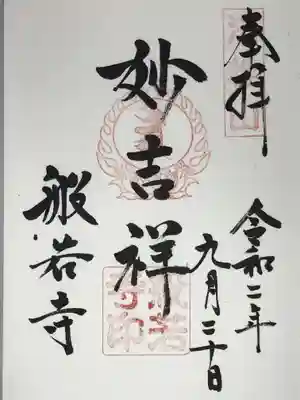 奉拝
令和二年
九月二十日
妙吉祥
般若寺